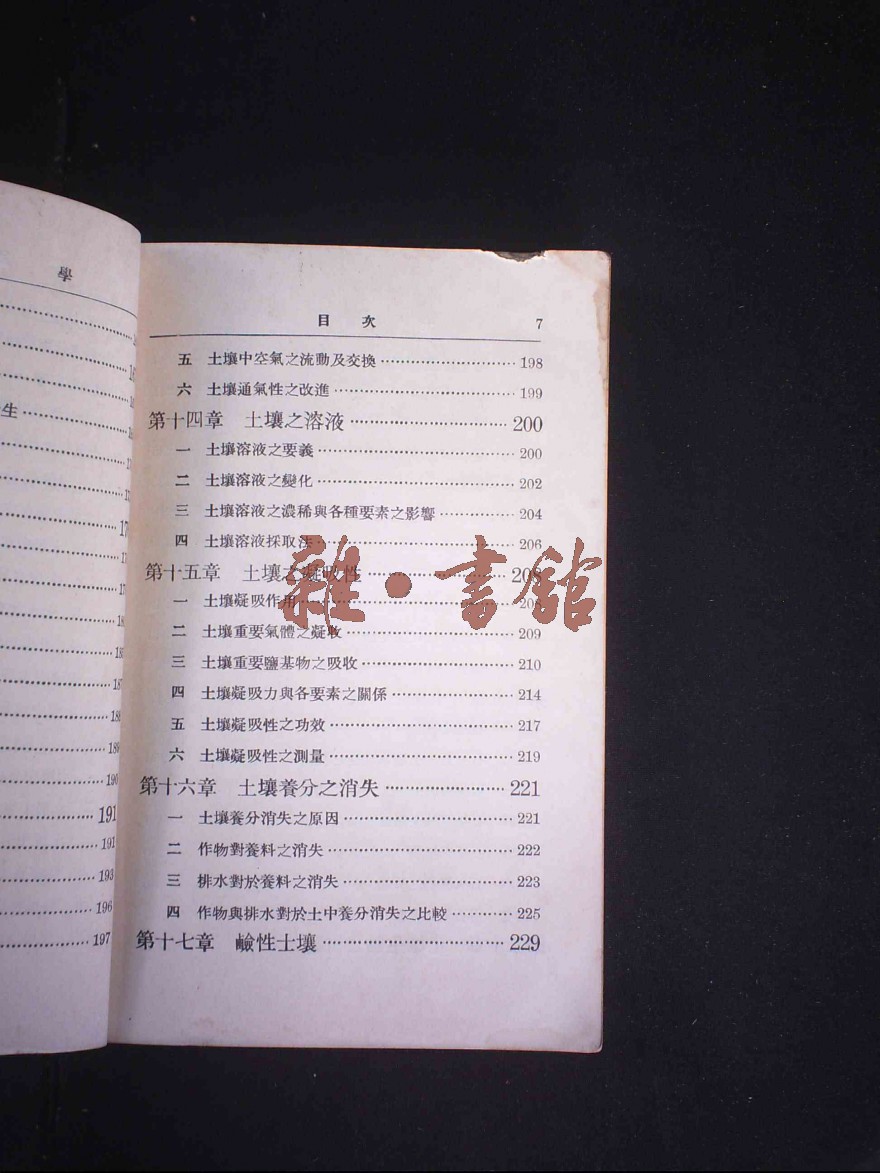 學
生
17
191
191
193
196
197
目 次 7
五 土壤中空氣之流動及交換 198
六 土壤通氣性之改進 199
第十四章 土壤之溶液 200
一 土壤溶液之要義 200
二 土壤溶液之變化 202
三 土壤溶液之濃稀與各種要素之影響 204
四 土壤溶液採取法 206
第十五章 土壤之凝吸性 208
一 土壤凝吸作用 208
二 土壤重要氣體之凝收 209
三 土壤重要鹽基物之吸收 210
四 土壤凝吸力與各要素之關係 214
五 土壤凝吸性之功效 217
六 土壤凝吸性之測量 219
第十六章 土壤養分之消失 221
一 土壤養分消失之原因 221
二 作物對養料之消失 222
三 排水對於養料之消失 223
四 作物與排水對於土中養分消失之比較 225
第十七章 鹼性土壤 229
雜·書館